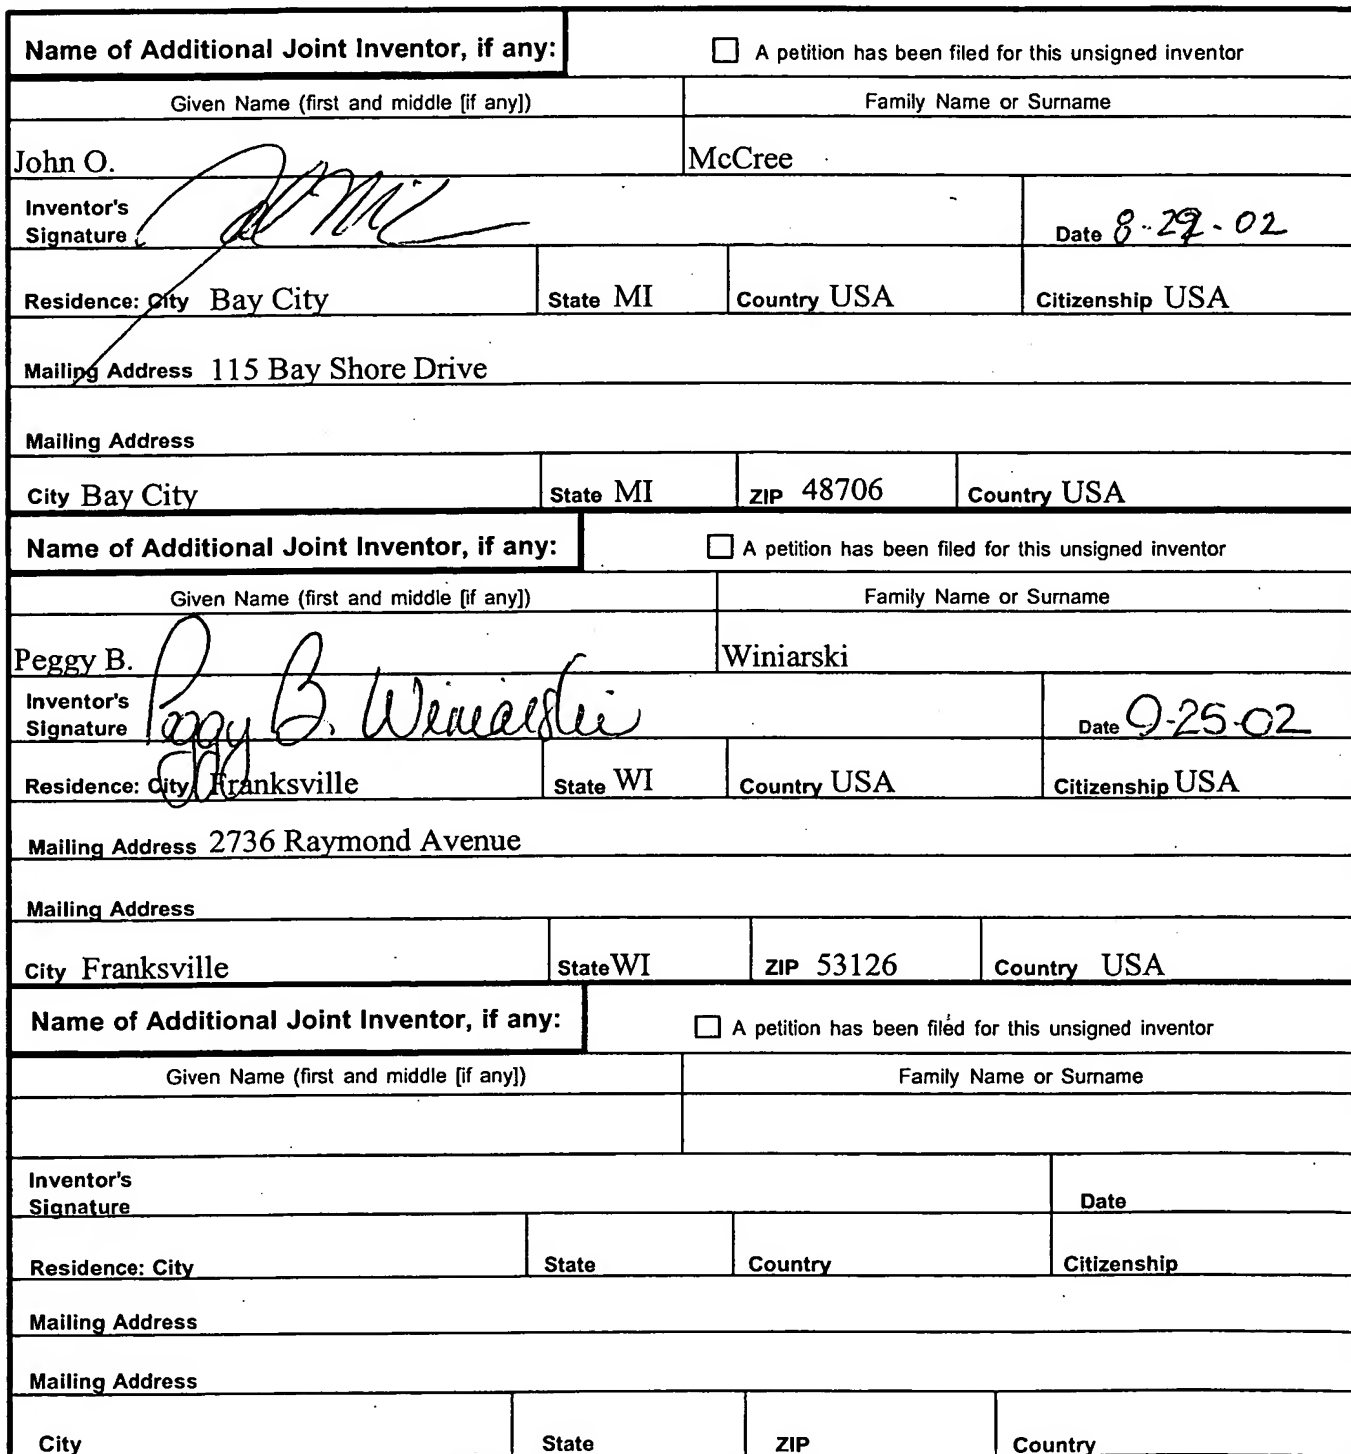 Name of Additional Joint Inventor, if any: ☐ A petition has been filed for this unsigned inventor
Given Name (first and middle [if any]) Family Name or Surname
John O. McCree
Inventor's
Signature Date 8-29-02
Residence: City Bay City State MI Country USA Citizenship USA
Mailing Address 115 Bay Shore Drive
Mailing Address
City Bay City State MI ZIP 48706 Country USA
Name of Additional Joint Inventor, if any: ☐ A petition has been filed for this unsigned inventor
Given Name (first and middle [if any]) Family Name or Surname
Peggy B. Winiarski
Inventor's
Signature Peggy B. Winiarski Date 9-25-02
Residence: City Franksville State WI Country USA Citizenship USA
Mailing Address 2736 Raymond Avenue
Mailing Address
City Franksville State WI ZIP 53126 Country USA
Name of Additional Joint Inventor, if any: ☐ A petition has been filed for this unsigned inventor
Given Name (first and middle [if any]) Family Name or Surname
Inventor's
Signature Date
Residence: City State Country Citizenship
Mailing Address
Mailing Address
City State ZIP Country